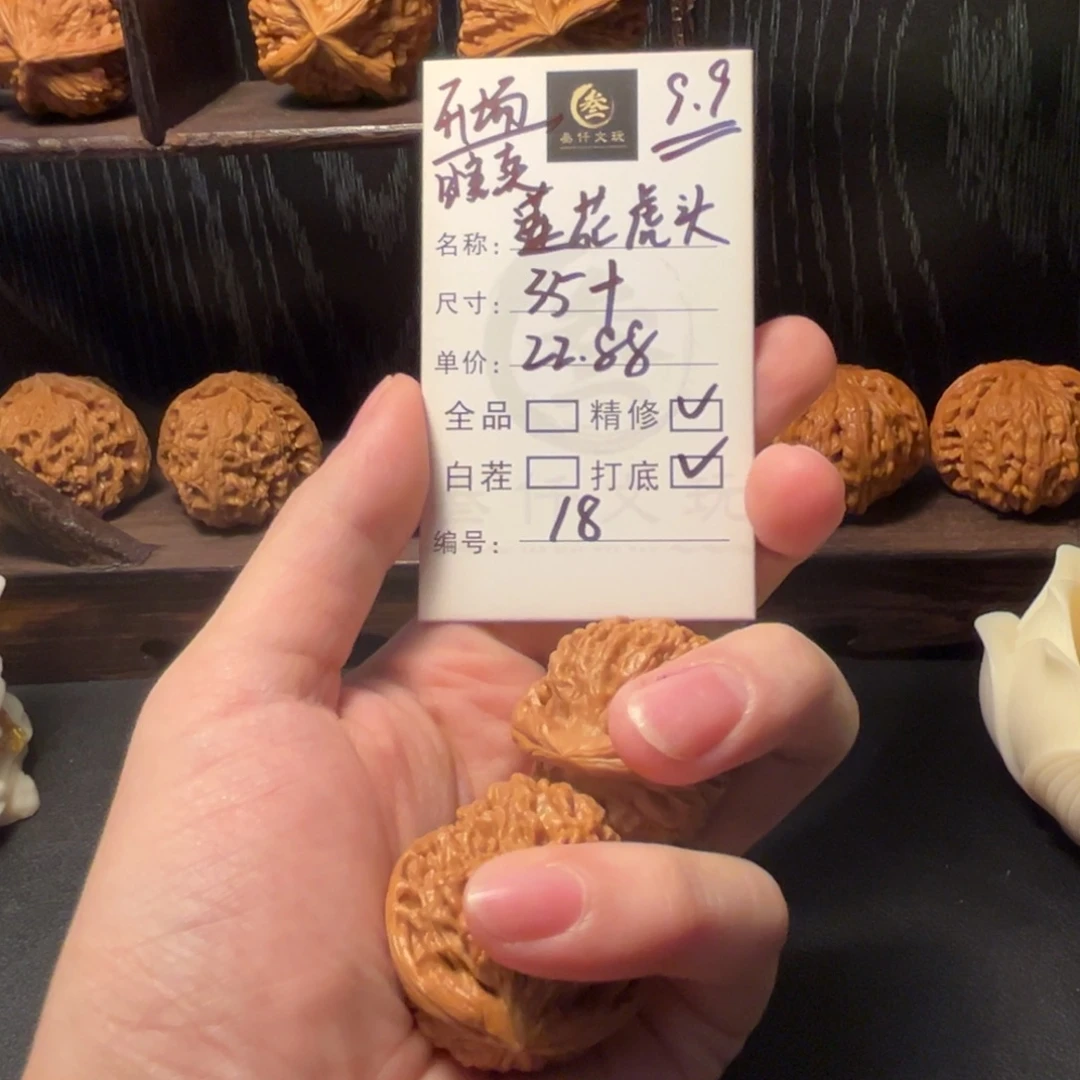 开场
9.9
叁
叁仟文玩
名称： 莲花虎头
尺寸： 35+
单价： 22.88
全品 精修 ✓
白茬 打底 ✓
编号： 18